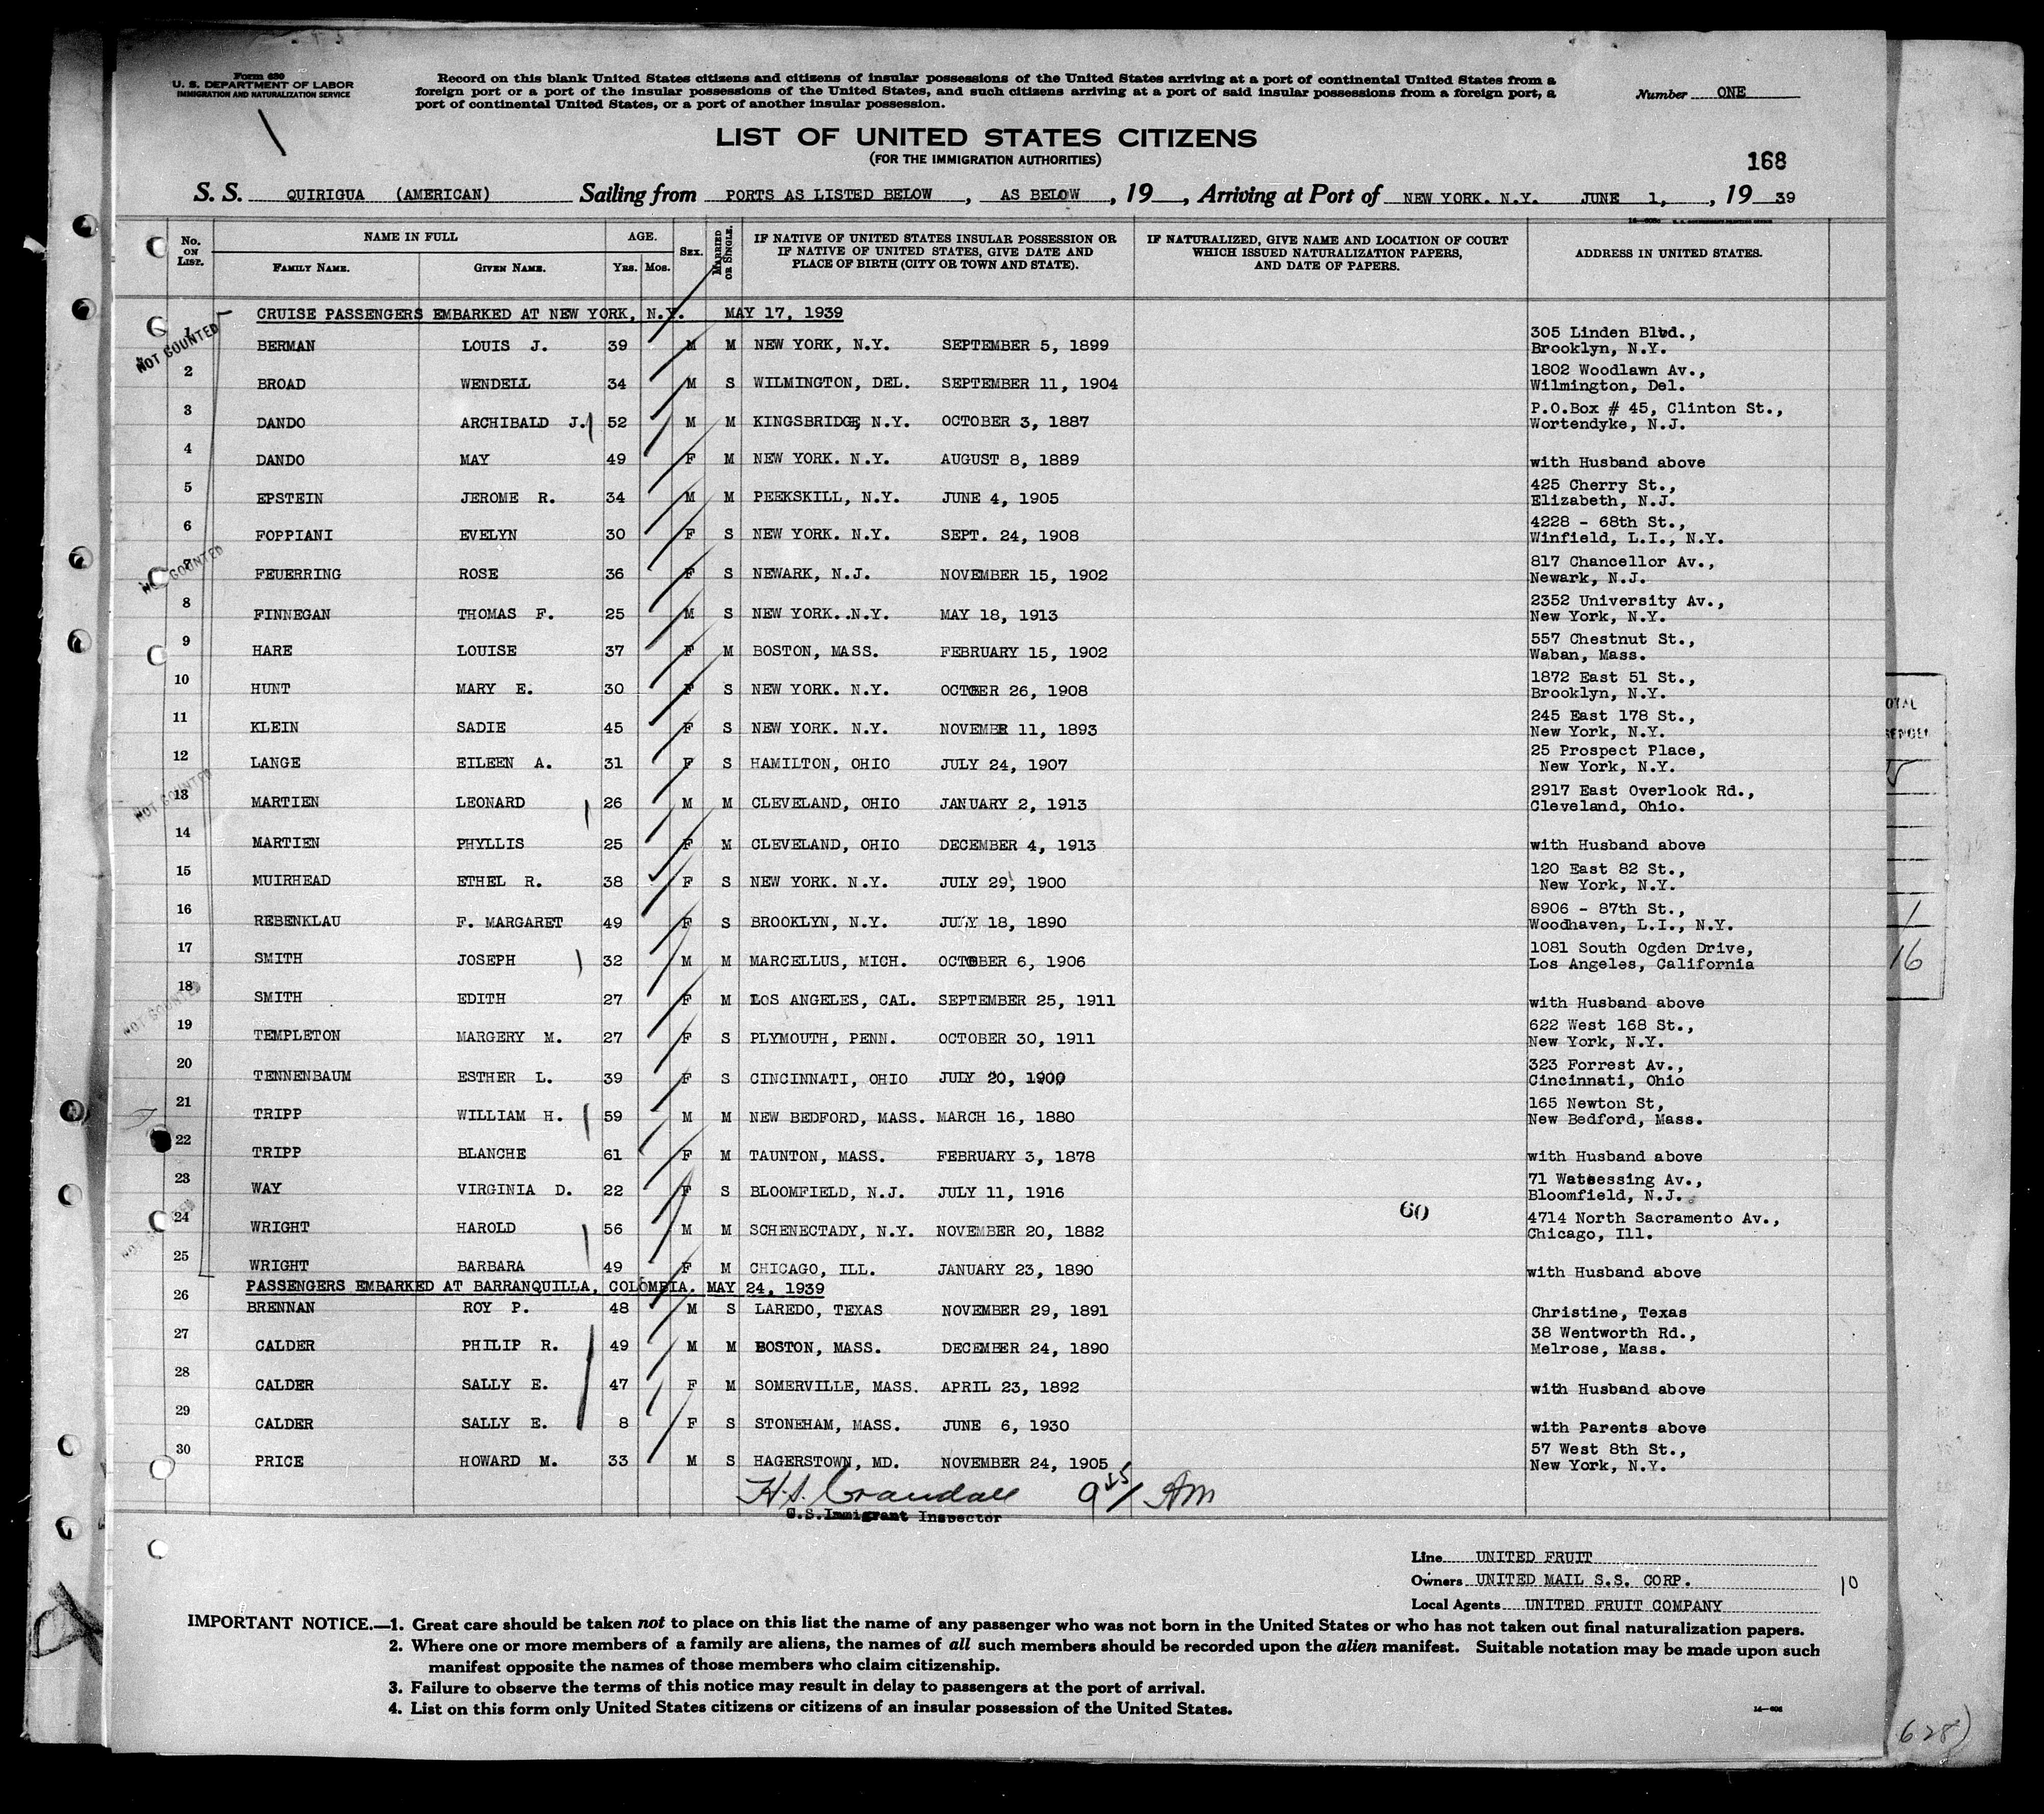 Form 630
U. S. DEPARTMENT OF LABOR
IMMIGRATION AND NATURALIZATION SERVICE
Record on this blank United States citizens and citizens of insular possessions of the United States arriving at a port of continental United States from a
foreign port or a port of the insular possessions of the United States, and such citizens arriving at a port of said insular possessions from a foreign port, a
port of continental United States, or a port of another insular possession.
Number ONE
LIST OF UNITED STATES CITIZENS
(FOR THE IMMIGRATION AUTHORITIES)
168
S. S. QUIRIGUA (AMERICAN) Sailing from PORTS AS LISTED BELOW, AS BELOW, 19 , Arriving at Port of NEW YORK. N.Y. JUNE 1, , 19 39
No. on List. NAME IN FULL AGE. Sex. Married or Single. IF NATIVE OF UNITED STATES INSULAR POSSESSION OR IF NATIVE OF UNITED STATES, GIVE DATE AND PLACE OF BIRTH (CITY OR TOWN AND STATE). IF NATURALIZED, GIVE NAME AND LOCATION OF COURT WHICH ISSUED NATURALIZATION PAPERS, AND DATE OF PAPERS. ADDRESS IN UNITED STATES.
Family Name. Given Name. Yrs. Mos.
CRUISE PASSENGERS EMBARKED AT NEW YORK, N.Y. MAY 17, 1939
NOT COUNTED
1 BERMAN LOUIS J. 39 M M NEW YORK, N.Y. SEPTEMBER 5, 1899 305 Linden Blvd., Brooklyn, N.Y.
2 BROAD WENDELL 34 M S WILMINGTON, DEL. SEPTEMBER 11, 1904 1802 Woodlawn Av., Wilmington, Del.
3 DANDO ARCHIBALD J. 52 M M KINGSBRIDGE, N.Y. OCTOBER 3, 1887 P.O.Box # 45, Clinton St., Wortendyke, N.J.
4 DANDO MAY 49 F M NEW YORK. N.Y. AUGUST 8, 1889 with Husband above
5 EPSTEIN JEROME R. 34 M M PEEKSKILL, N.Y. JUNE 4, 1905 425 Cherry St., Elizabeth, N.J.
6 FOPPIANI EVELYN 30 F S NEW YORK. N.Y. SEPT. 24, 1908 4228 - 68th St., Winfield, L.I., N.Y.
NOT COUNTED
7 FEUERRING ROSE 36 F S NEWARK, N.J. NOVEMBER 15, 1902 817 Chancellor Av., Newark, N.J.
8 FINNEGAN THOMAS F. 25 M S NEW YORK..N.Y. MAY 18, 1913 2352 University Av., New York, N.Y.
9 HARE LOUISE 37 F M BOSTON, MASS. FEBRUARY 15, 1902 557 Chestnut St., Waban, Mass.
10 HUNT MARY E. 30 F S NEW YORK. N.Y. OCTOBER 26, 1908 1872 East 51 St., Brooklyn, N.Y.
11 KLEIN SADIE 45 F S NEW YORK. N.Y. NOVEMBER 11, 1893 245 East 178 St., New York, N.Y.
12 LANGE EILEEN A. 31 F S HAMILTON, OHIO JULY 24, 1907 25 Prospect Place, New York, N.Y.
NOT COUNTED
13 MARTIEN LEONARD 26 M M CLEVELAND, OHIO JANUARY 2, 1913 2917 East Overlook Rd., Cleveland, Ohio.
14 MARTIEN PHYLLIS 25 F M CLEVELAND, OHIO DECEMBER 4, 1913 with Husband above
15 MUIRHEAD ETHEL R. 38 F S NEW YORK. N.Y. JULY 29, 1900 120 East 82 St., New York, N.Y.
16 REBENKLAU F. MARGARET 49 F S BROOKLYN, N.Y. JULY 18, 1890 8906 - 87th St., Woodhaven, L.I., N.Y.
17 SMITH JOSEPH 32 M M MARCELLUS, MICH. OCTOBER 6, 1906 1081 South Ogden Drive, Los Angeles, California
NOT COUNTED
18 SMITH EDITH 27 F M LOS ANGELES, CAL. SEPTEMBER 25, 1911 with Husband above
19 TEMPLETON MARGERY M. 27 F S PLYMOUTH, PENN. OCTOBER 30, 1911 622 West 168 St., New York, N.Y.
20 TENNENBAUM ESTHER L. 39 F S CINCINNATI, OHIO JULY 20, 1900 323 Forrest Av., Cincinnati, Ohio
21 TRIPP WILLIAM H. 59 M M NEW BEDFORD, MASS. MARCH 16, 1880 165 Newton St, New Bedford, Mass.
22 TRIPP BLANCHE 61 F M TAUNTON, MASS. FEBRUARY 3, 1878 with Husband above
23 WAY VIRGINIA D. 22 F S BLOOMFIELD, N.J. JULY 11, 1916 71 Watsessing Av., Bloomfield, N.J.
24 WRIGHT HAROLD 56 M M SCHENECTADY, N.Y. NOVEMBER 20, 1882 60 4714 North Sacramento Av., Chicago, Ill.
25 WRIGHT BARBARA 49 F M CHICAGO, ILL. JANUARY 23, 1890 with Husband above
PASSENGERS EMBARKED AT BARRANQUILLA, COLOMBIA. MAY 24, 1939
26 BRENNAN ROY P. 48 M S LAREDO, TEXAS NOVEMBER 29, 1891 Christine, Texas
27 CALDER PHILIP R. 49 M M BOSTON, MASS. DECEMBER 24, 1890 38 Wentworth Rd., Melrose, Mass.
28 CALDER SALLY E. 47 F M SOMERVILLE, MASS. APRIL 23, 1892 with Husband above
29 CALDER SALLY E. 8 F S STONEHAM, MASS. JUNE 6, 1930 with Parents above
30 PRICE HOWARD M. 33 M S HAGERSTOWN, MD. NOVEMBER 24, 1905 57 West 8th St., New York, N.Y.
H.S. Crandall 9 45/ AM
U.S.Immigrant Inspector
Line UNITED FRUIT
Owners UNITED MAIL S.S. CORP.
10
Local Agents UNITED FRUIT COMPANY
IMPORTANT NOTICE.—1. Great care should be taken not to place on this list the name of any passenger who was not born in the United States or who has not taken out final naturalization papers.
2. Where one or more members of a family are aliens, the names of all such members should be recorded upon the alien manifest. Suitable notation may be made upon such
manifest opposite the names of those members who claim citizenship.
3. Failure to observe the terms of this notice may result in delay to passengers at the port of arrival.
4. List on this form only United States citizens or citizens of an insular possession of the United States.
1
16
628)